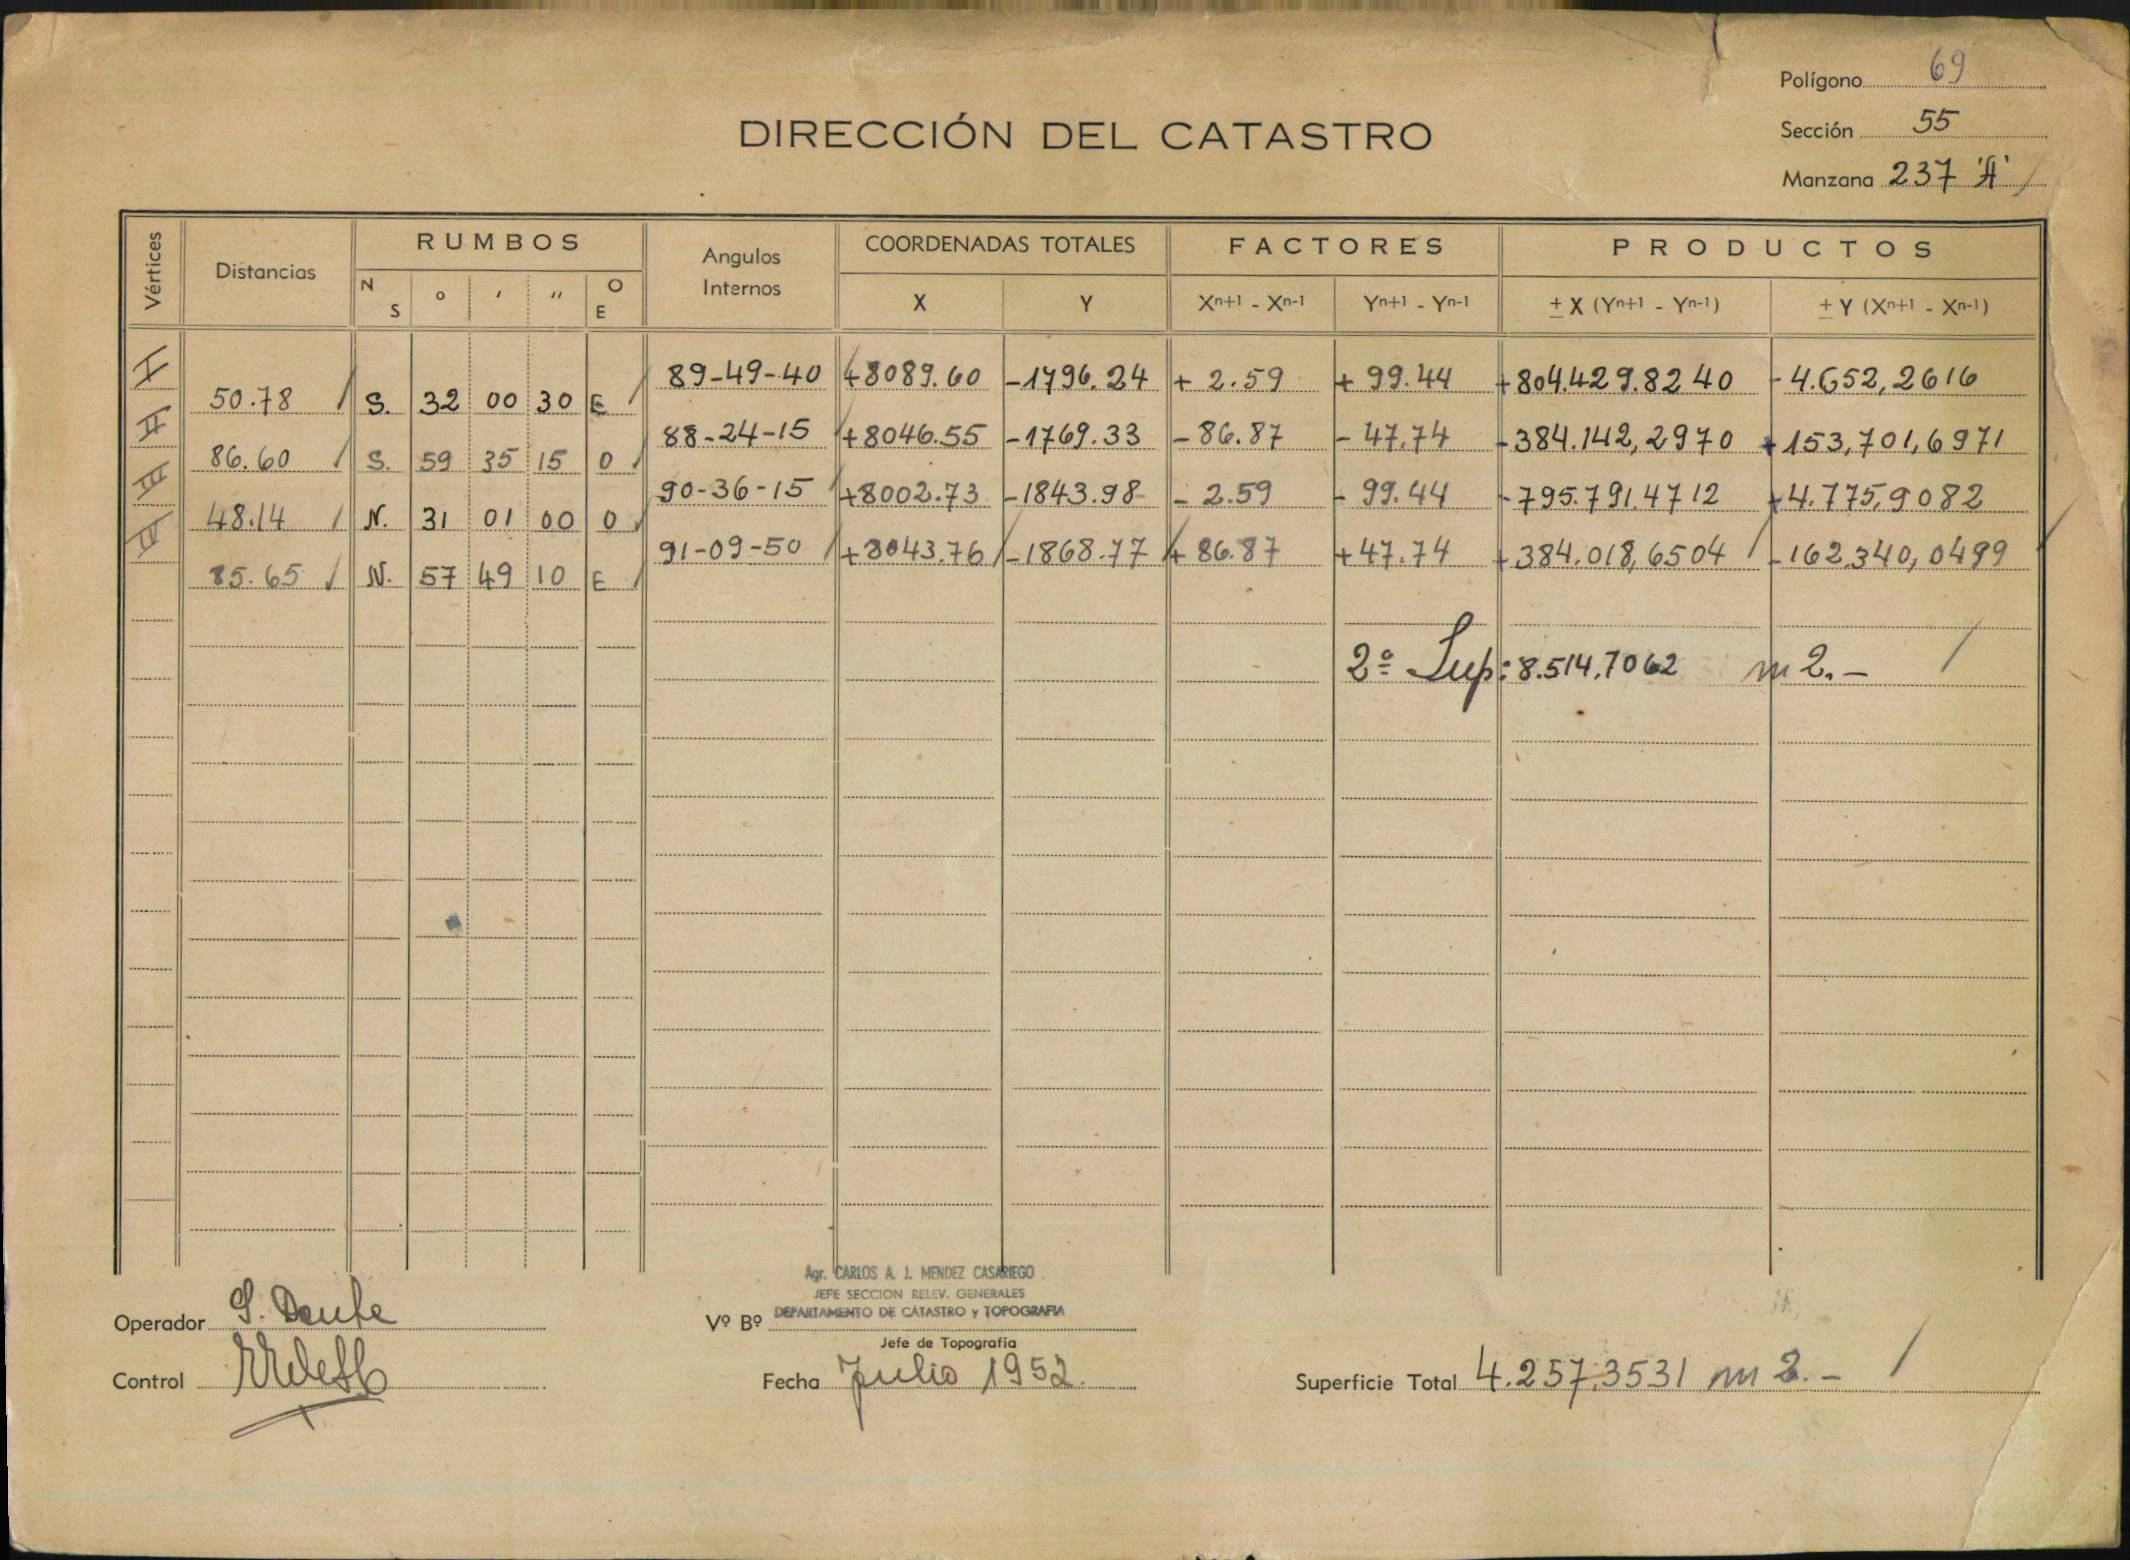 Polígono 69
DIRECCIÓN DEL CATASTRO
Sección 55
Manzana 237 'A'
Vértices Distancias RUMBOS Angulos Internos COORDENADAS TOTALES FACTORES PRODUCTOS
N S o ' '' O E X Y Xn+1 - Xn-1 Yn+1 - Yn-1 ± X (Yn+1 - Yn-1) ± Y (Xn+1 - Xn-1)
I 89-49-40 +8089.60 -1796.24 + 2.59 + 99.44 +804.429.8240 -4.652,2616
50.78 S. 32 00 30 E
II 88-24-15 +8046.55 -1769.33 - 86.87 - 47.74 -384.142,2970 +153,701,6971
86.60 S. 59 35 15 O
III 90-36-15 +8002.73 -1843.98 - 2.59 - 99.44 -795.791.4712 +4.775,9082
48.14 N. 31 01 00 O
IV 91-09-50 +8043.76 -1868.77 + 86.87 +47.74 +384.018,6504 -162.340,0499
85.65 N. 57 49 10 E
2º Sup: 8.514,7062 m2.-
Agr. CARLOS A. J. MENDEZ CASARIEGO
JEFE SECCION RELEV. GENERALES
DEPARTAMENTO DE CATASTRO y TOPOGRAFIA
Operador
Vº Bº
Jefe de Topografía
Control
Fecha Julio 1952.
Superficie Total 4.257,3531 m2.-